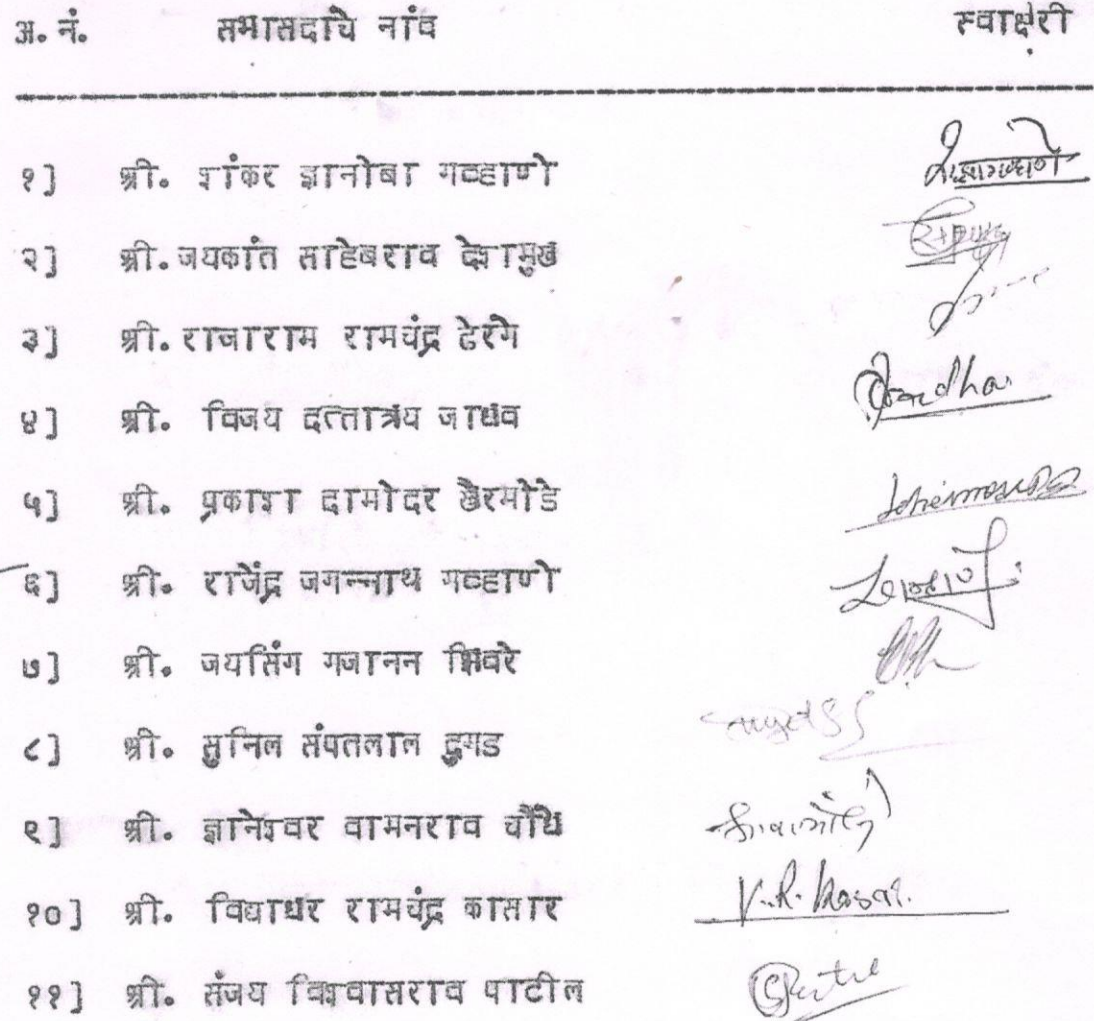 अ. नं. सभासदांचे नांव स्वाक्षरी
१] श्री. शंकर ज्ञानोबा गव्हाणे
२] श्री. जयकांत साहेबराव देशमुख
३] श्री. राजाराम रामचंद्र ढेरंगे
४] श्री. विजय दत्तात्रय जाधव
५] श्री. प्रकाश दामोदर खैरमोडे
६] श्री. राजेंद्र जगन्नाथ गव्हाणे
७] श्री. जयसिंग गजानन भिवरे
८] श्री. सुनिल संपतलाल दुगड
९] श्री. ज्ञानेश्वर वामनराव चौधे
१०] श्री. विद्याधर रामचंद्र कासार V.R. Kasar.
११] श्री. संजय विश्वासराव पाटील